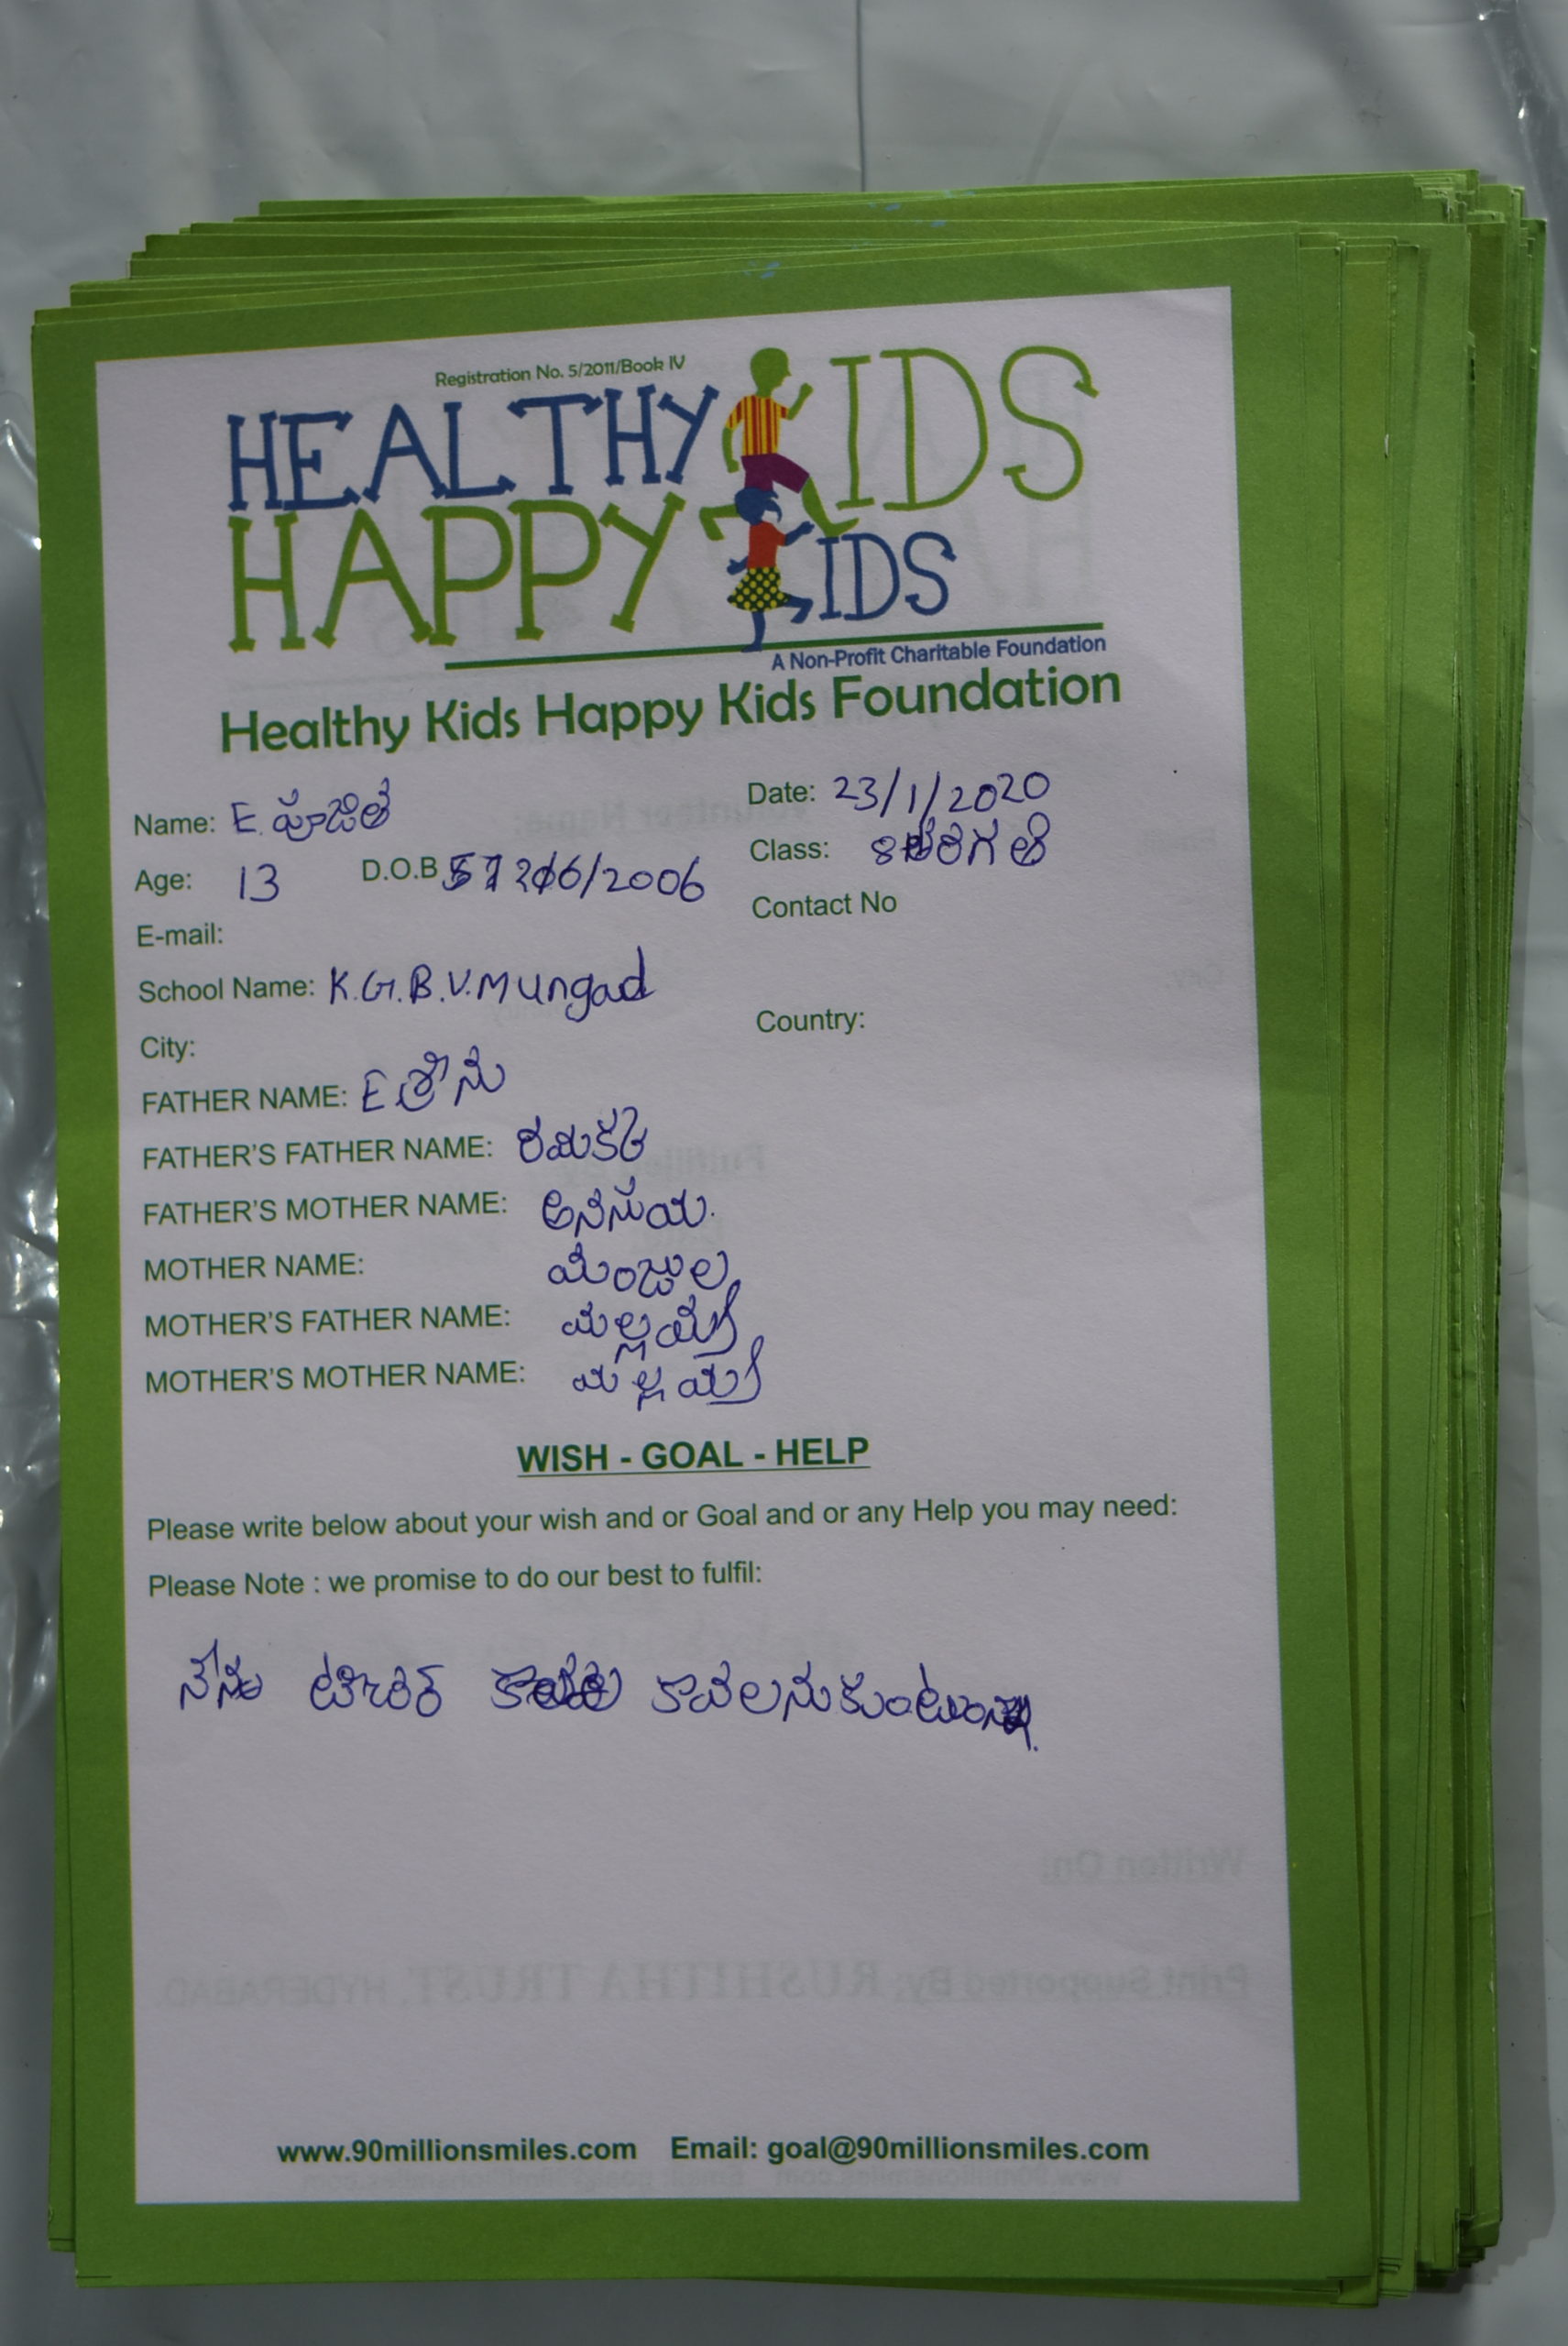 Registration No. 5/2011/Book IV
HEALTHY KIDS
HAPPY KIDS
A Non-Profit Charitable Foundation
Healthy Kids Happy Kids Foundation
Name: E. పూజిత Date: 23/1/2020
Age: 13 D.O.B /2006 Class: 8 తరగతి
E-mail: Contact No
School Name: K.G.B.V. Mungad
City: Country:
FATHER NAME: E శ్రీను
FATHER'S FATHER NAME:
FATHER'S MOTHER NAME: అనసుయ.
MOTHER NAME: మంజుల
MOTHER'S FATHER NAME: మల్లయ్య
MOTHER'S MOTHER NAME: మల్లమ్మ
WISH - GOAL - HELP
Please write below about your wish and or Goal and or any Help you may need:
Please Note : we promise to do our best to fulfil:
నేను టీచర్ కావలనుకుంటున్న.
www.90millionsmiles.com Email: goal@90millionsmiles.com